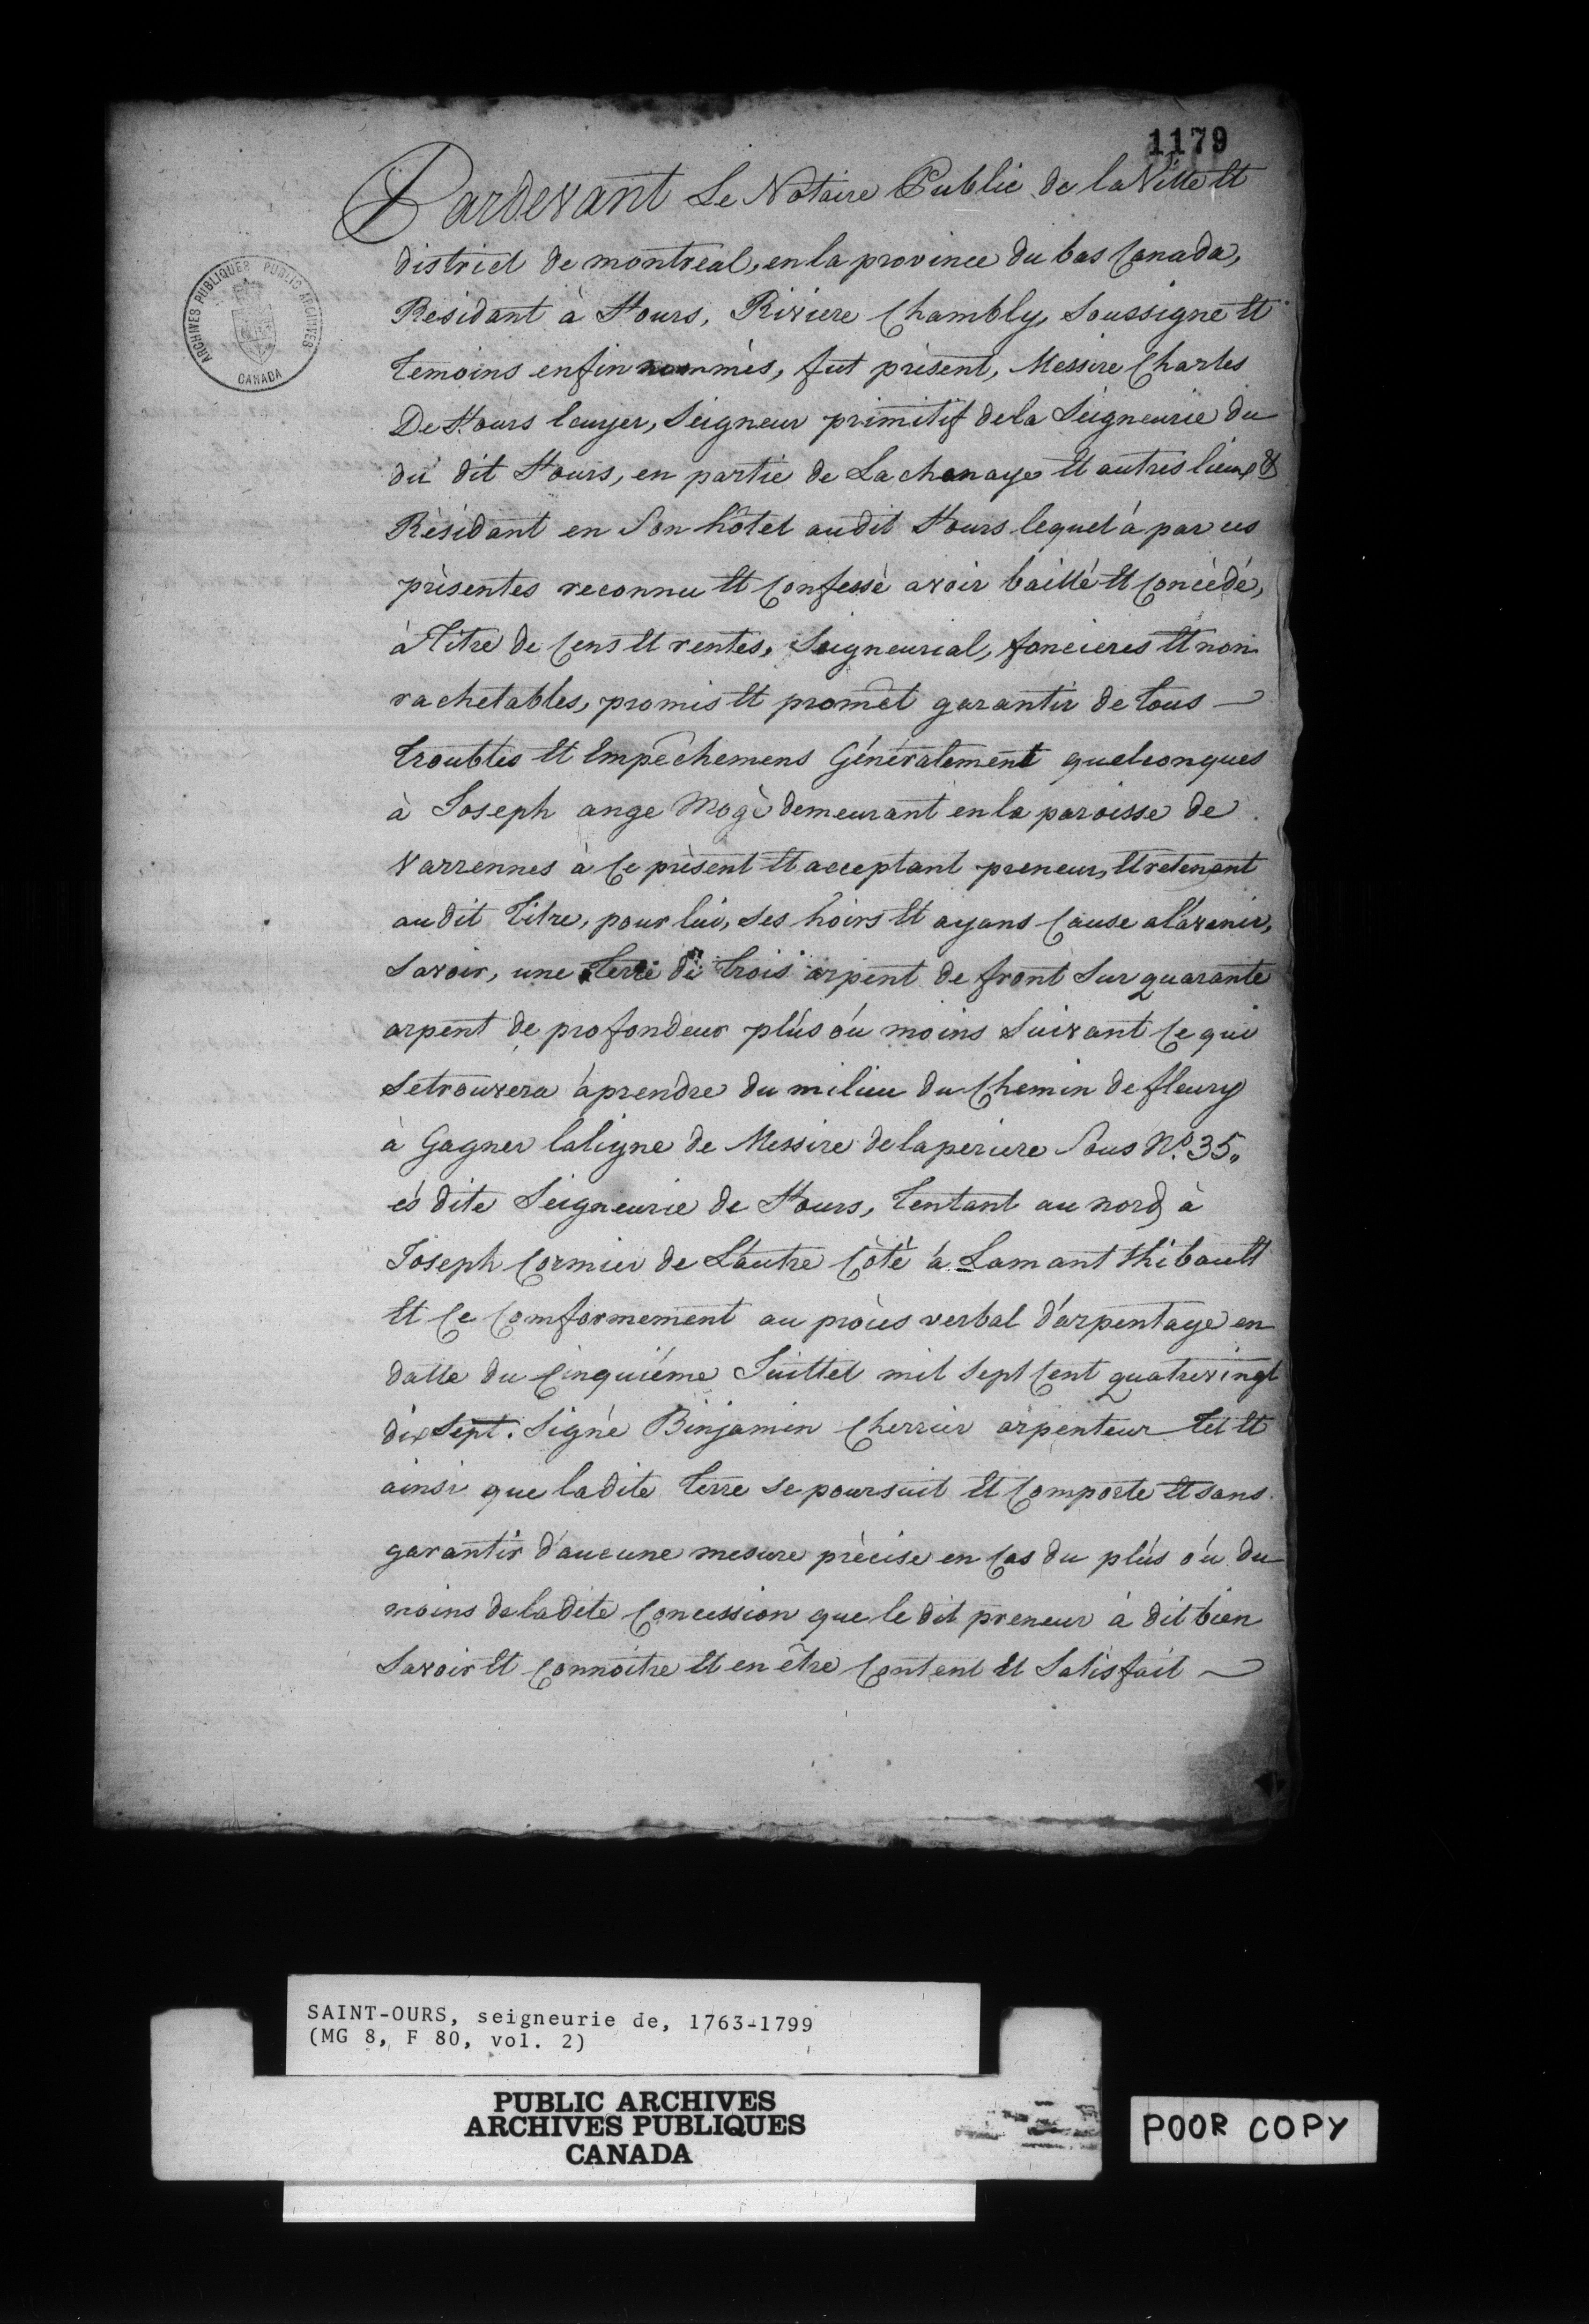 1179
Pardevant Le Notaire Public de la Ville Et
district de montreal, en la province du bas Canada,
Residant à St ours, Riviere Chambly, Soussigné Et
temoins enfin nommès, fut présent, Messire Charles
De St ours Ecuyer, Seigneur primitif de la Seigneurie du
du dit St ours, en partie de Lachenaye Et autres lieux &
Résidant en Son hôtel audit St ours lequel à par ces
présentes reconnu Et Confessè avoir baillé Et Concédé,
à Titre de Cens Et rentes, Seigneurial, foncieres Et non
rachetables, promis Et promet garantir de tous
troubles Et Empêchemens Généralement quelconques
à Joseph ange Mogé demeurant en la paroisse de
Varrennes à Ce prèsent Et acceptant preneur, Et retenant
audit Titre, pour lui, Ses hoirs Et ayans Cause al'avenir,
Savoir, une terre de trois arpent de front Sur quarante
arpent de profondeur plús óu moins Suivant Ce qui
Setrouvera àprendre du milieu du Chemin de fleury
à Gagner laligne de Messire delaperiere Sous No. 35,,
és dite Seigneurie de St ours, tentant au nord à
Joseph Cormier de L'autre Còtè à Lamant thibault
Et Ce Comformement au procès verbal d'arpentage en
datte du Cinquiéme Juillet mil Sept Cent quatrevingt
dix Sept. Signé Binjamin Cherrier arpenteur tel Et
ainsi que ladite terre se poursuit Et Comporte Et sans
garantir d'aucune mesure prècise en Cas du plús óu du
moins de ladite Concession que le dit preneur à dit bien
Savoir Et Connoitre Et en être Content Et Satisfait
ARCHIVES PUBLIQUES PUBLIC ARCHIVES
CANADA
SAINT-OURS, seigneurie de, 1763-1799
(MG 8, F 80, vol. 2)
PUBLIC ARCHIVES
ARCHIVES PUBLIQUES
CANADA
POOR COPY